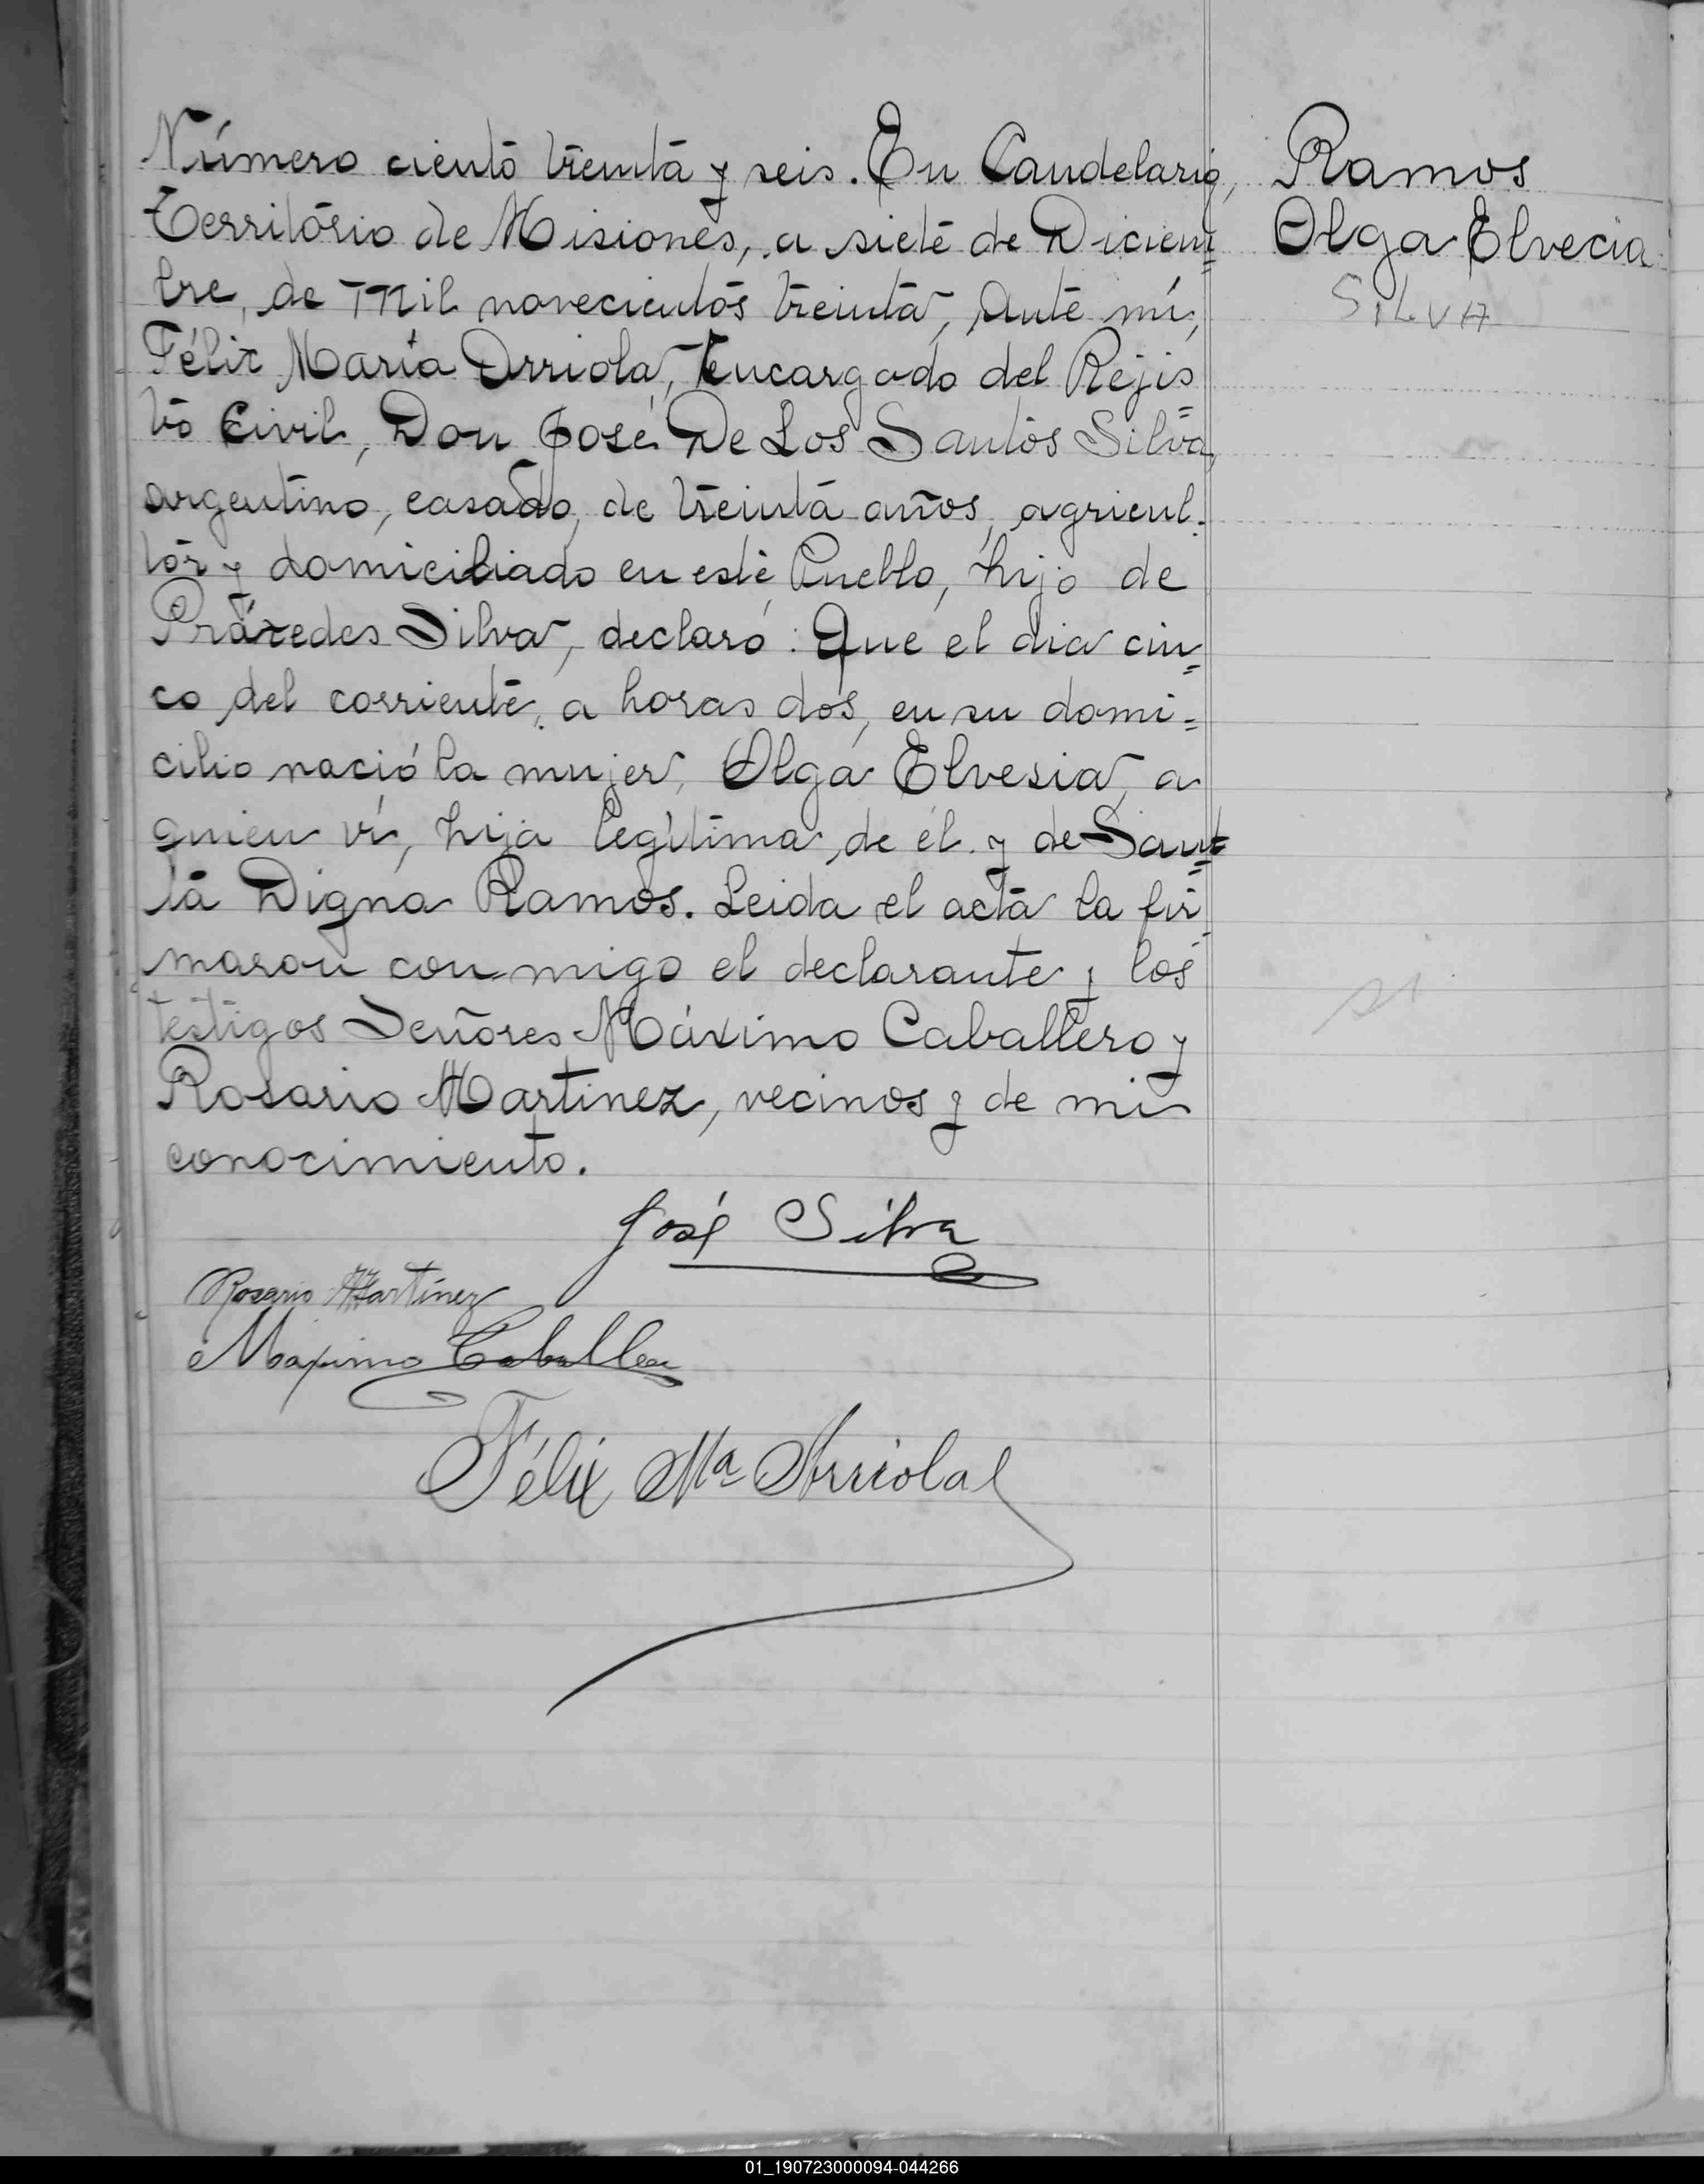 Número ciento treinta y seis. En Candelaria,
Territorio de Misiones, a siete de Diciem=
bre, de Mil novecientos treinta, Ante mí,
Félix María Arriola, Encargado del Rejis=
tro Civil, Don José De Los Santos Silva,
argentino, casado, de treinta años, agricul=
tor y domiciliado en este Pueblo, hijo de
Práxedes Silva, declaró: Que el dia cin=
co del corriente, a horas dos, en su domi=
cilio nació la mujer, Olga Elvesia, a
quien ví, hija legítima, de él y de San=
ta Digna Ramos. Leida el acta la fir=
maron con migo el declarante y los
testigos Señores Máximo Caballero y
Rosario Martinez, vecinos y de mi
conocimiento.
José Silva
Rosario Martinez
Maximo Caballero
Félix Ma Arriola
Ramos
Olga Elvecia
SILVA
si
01_190723000094-044266